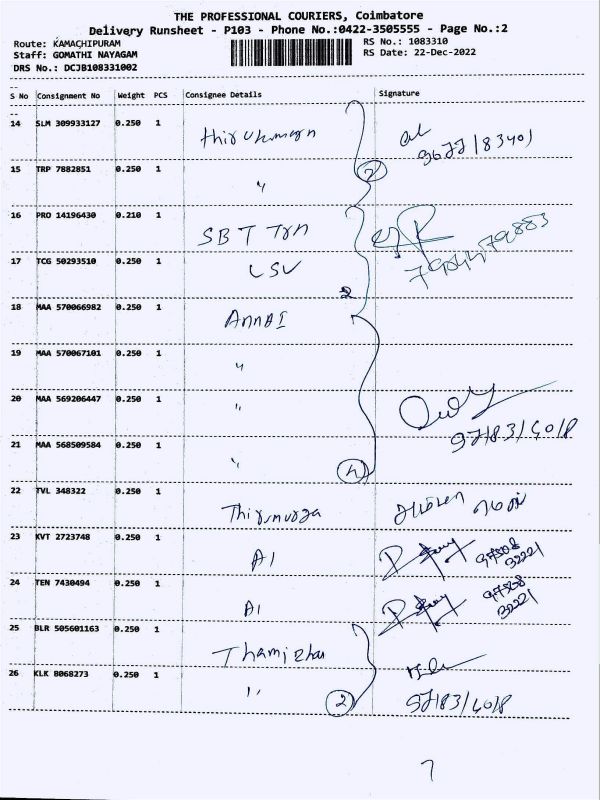 THE PROFESSIONAL COURIERS, Coimbatore
Delivery Runsheet - P103 - Phone No.:0422-3505555 - Page No.:2
Route: KAMACHIPURAM
RS No.: 1083310
Staff: GOMATHI NAYAGAM
RS Date: 22-Dec-2022
DRS No.: DCJB108331002
S No Consignment No Weight PCS Consignee Details Signature
14 SLM 309933127 0.250 1
9677183401
15 TRP 7882851 0.250 1 "
2
16 PRO 14196430 0.210 1 SBT Trn
7904479883
17 TCG 50293510 0.250 1 LSV
2
18 MAA 570066982 0.250 1 ANNAI
19 MAA 570067101 0.250 1 "
20 MAA 569206447 0.250 1 "
9718314018
21 MAA 568509584 0.250 1 "
4
22 TVL 348322 0.250 1
23 KVT 2723748 0.250 1 A1
97508
32221
24 TEN 7430494 0.250 1 A1
97508
32221
25 BLR 505601163 0.250 1
26 KLK 8068273 0.250 1 "
2
9718314018
7